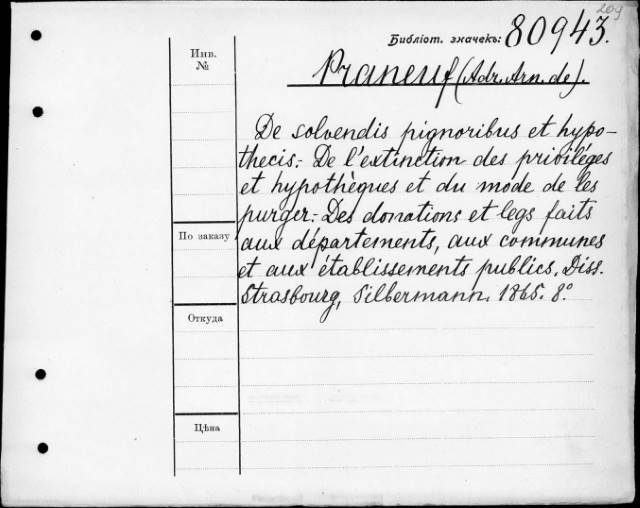 209
Библіот. значекъ: 80943.
Инв.
№
Praneuf (Adr. Arn. de).
De solvendis pignoribus et hypo-
thecis.- De l'extinction des priviléges
et hypothèques et du mode de les
purger.- Des donations et legs faits
aux départements, aux communes
et aux établissements publics. Diss.
Strasbourg, Silbermann. 1865. 8°.
По заказу
Откуда
Цѣна